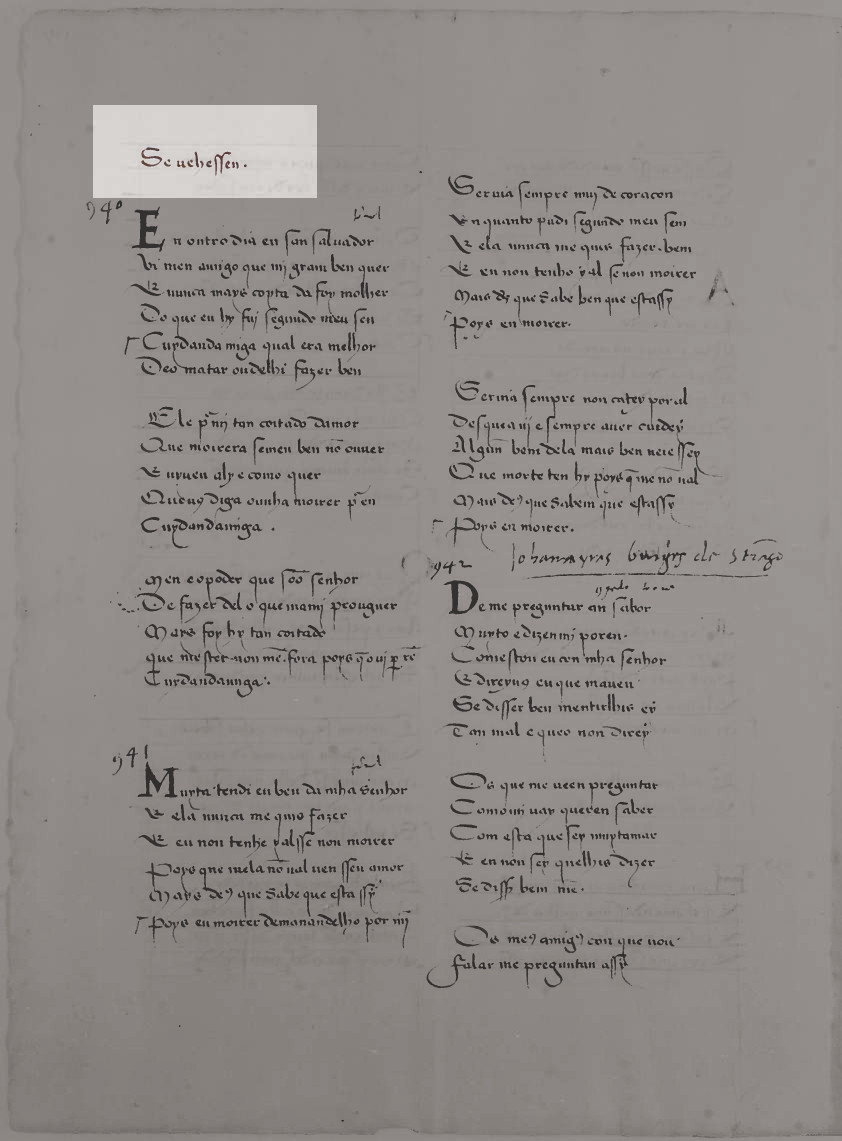 Se uehessen.
940
En outro dia en san saluador
Vi meu amigo que mi gram ben quer
E nunca mays coyta da foy molher
Do que eu hy fui segundo meu sen
Cuydanda miga qual era melhor
Deo matar oudelhi fazer ben
El e tan coitado damor
Que moirera semeu ben nõ ouuer
E uyueu aly e como quer
Queuꝯ diga ounha moirer en
Cuydandamiga.
Men e o poder que soõ senhor
De fazer del o que mami prouguer
Mays foy hy tan coitado
que mester non fora poys
Cuydandamiga.
941
Muyta tendi eu ben da mha senhor
E ela nunca me quis fazer
E eu non tenhe yalsse non moirer
Poys que mela nõ ual uen sseu amor
Mays deꝯ que sabe que esta ssy
Poys eu moirer demanandelho por mi
Seruia sempre muy de coracon
En quanto pudi segundo meu sem
E ela nunca me quis fazer ben
E eu non tenho y al senon moirer
Mais que sabe ben que estassy
Poys eu moirer.
Seruia sempre non catey por al
Desquea uj e sempre auer cuidey
Algũ bem dela mais ben ueiessey
Que morte ten hy poys q̃ me nõ ual
Mais deꝯ que sabem que estassy
Poys eu moirer.
942
De me preguntar an sabor
Muyto e dizenmi poren.
Comeston eu con mha senhor
E direyuꝯ eu que mauen
Se disser ben mentirlhis ey
Tan mal e queo non direy
Os que me ueen preguntar
Como mi uay queren saber
Com esta que sey muytamar
E eu non sey quelhis dizer
Se dissʼ bem
Os meꝯ amigꝯ con que uou
Falar me preguntan assy